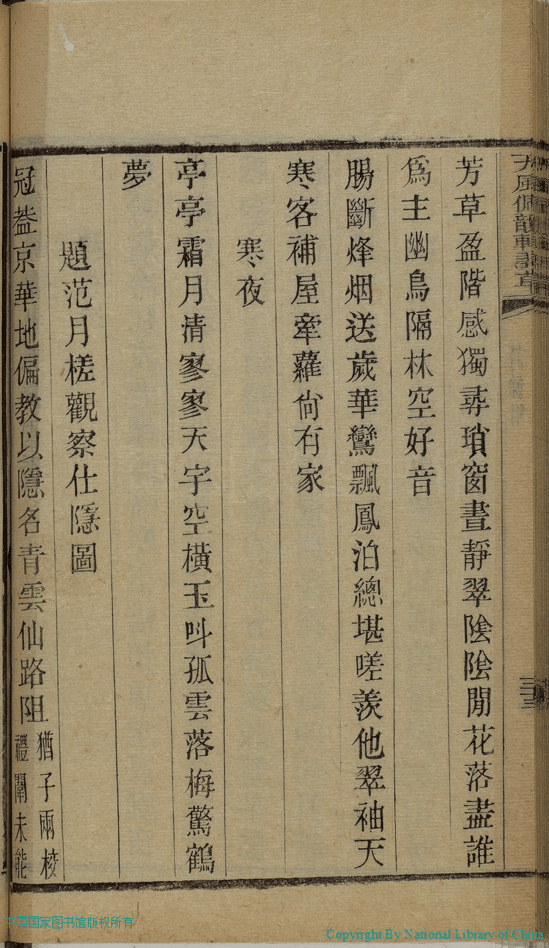 芳草盈階感獨尋瑣窗晝靜翠陰陰閒花落盡誰
爲主幽鳥隔林空好音
腸斷烽烟送歲華鸞飄鳳泊總堪嗟羨他翠袖天
寒客補屋牽蘿尙有家
寒夜
亭亭霜月清寥寥天宇空橫玉叫孤雲落梅驚鶴
夢
題范月槎觀察仕隱圖
冠葢京華地偏教以隱名青雲仙路阻
猶子兩棱
禮闈未能
中国国家图书馆版权所有
Copyright By National Library of China